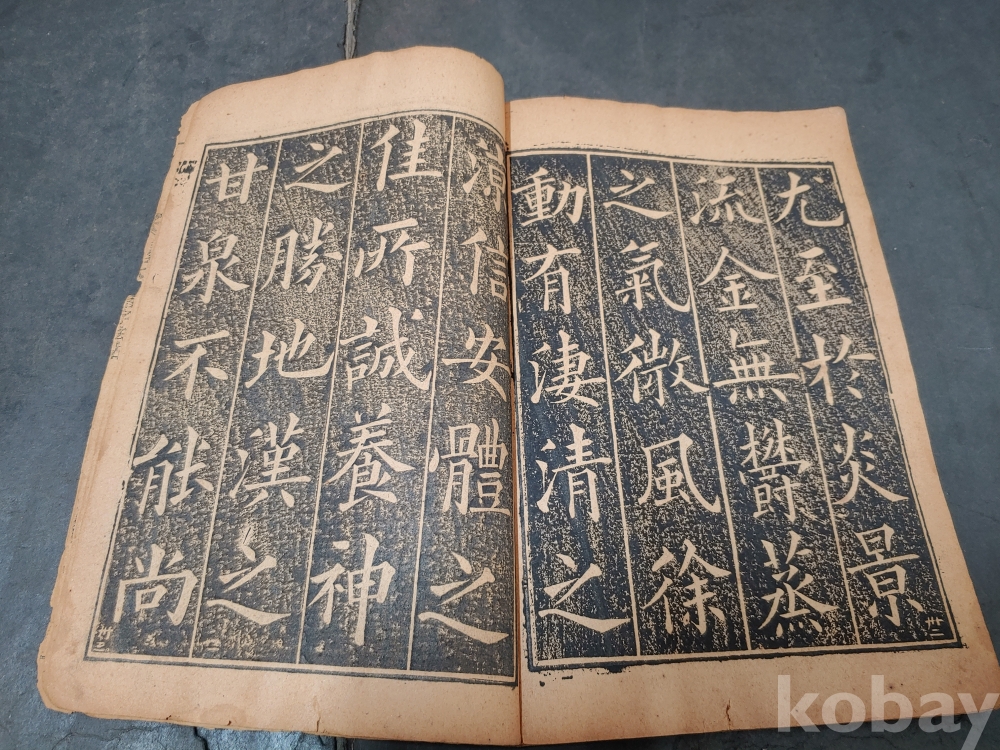 尤至於炎景
流金無欝蒸
之氣微風徐
動有淒清之
涼信安體之
佳所誠養神
之勝地漢之
甘泉不能尚
卅二
kobay